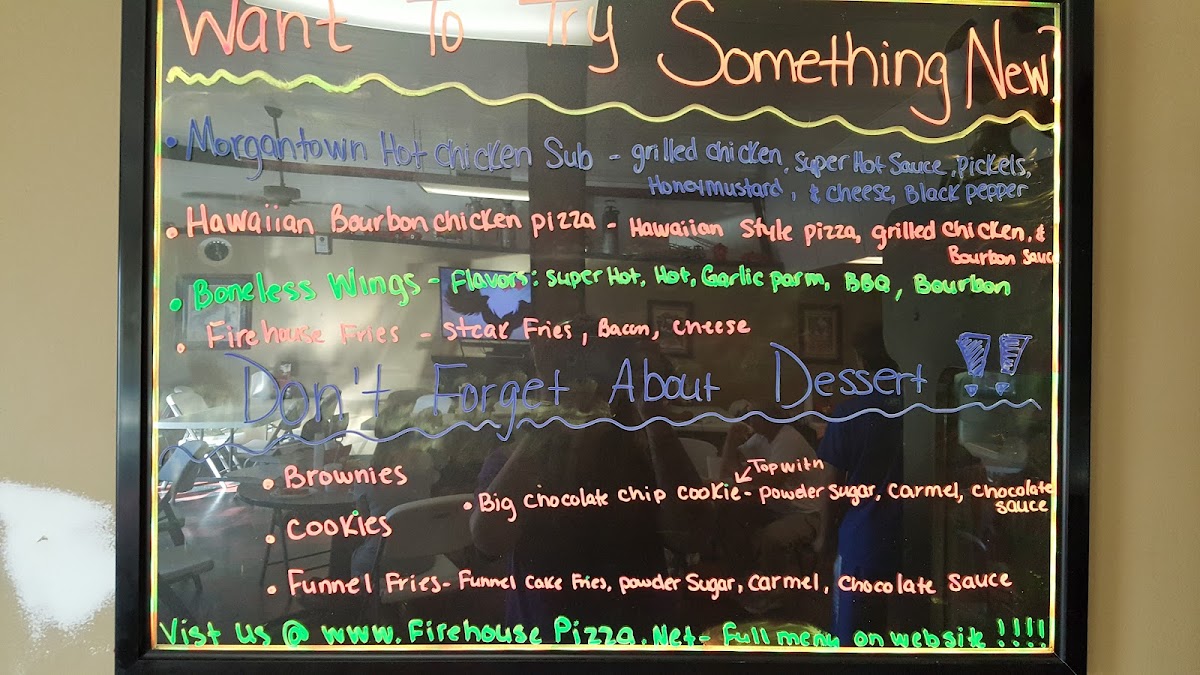 Want To Try Something New?
• Morgantown Hot Chicken Sub - grilled chicken, super Hot Sauce, pickels,
Honeymustard, & cheese, Black pepper
• Hawaiian Bourbon chicken pizza - Hawaiian Style pizza, grilled chicken, &
Bourbon Sauce
• Boneless Wings - Flavors: super Hot, Hot, Garlic parm, BBQ, Bourbon
• Firehouse Fries - steak Fries, Bacon, cheese
Don't Forget About Dessert !!
• Brownies
Top with
• Big chocolate chip cookie - powder sugar, carmel, chocolate
sauce
• Cookies
• Funnel Fries - Funnel cake Fries, powder sugar, carmel, chocolate sauce
Vist us @ www.FirehousePizza.Net - full menu on website !!!!